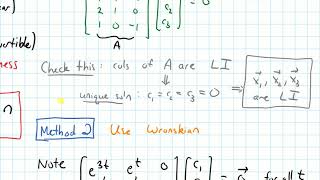 ear
2 1 0 c₂ = 0
1 0 -1 c₃
vertible)
A
ness
Check this : cols of A are LI
⇓
unique soln : c₁ = c₂ = c₃ = 0 ⇒ x⃗₁, x⃗₂, x⃗₃
are LI
n
Method 2 Use Wronskian
Note e³ᵗ eᵗ 0 c₁ for all t